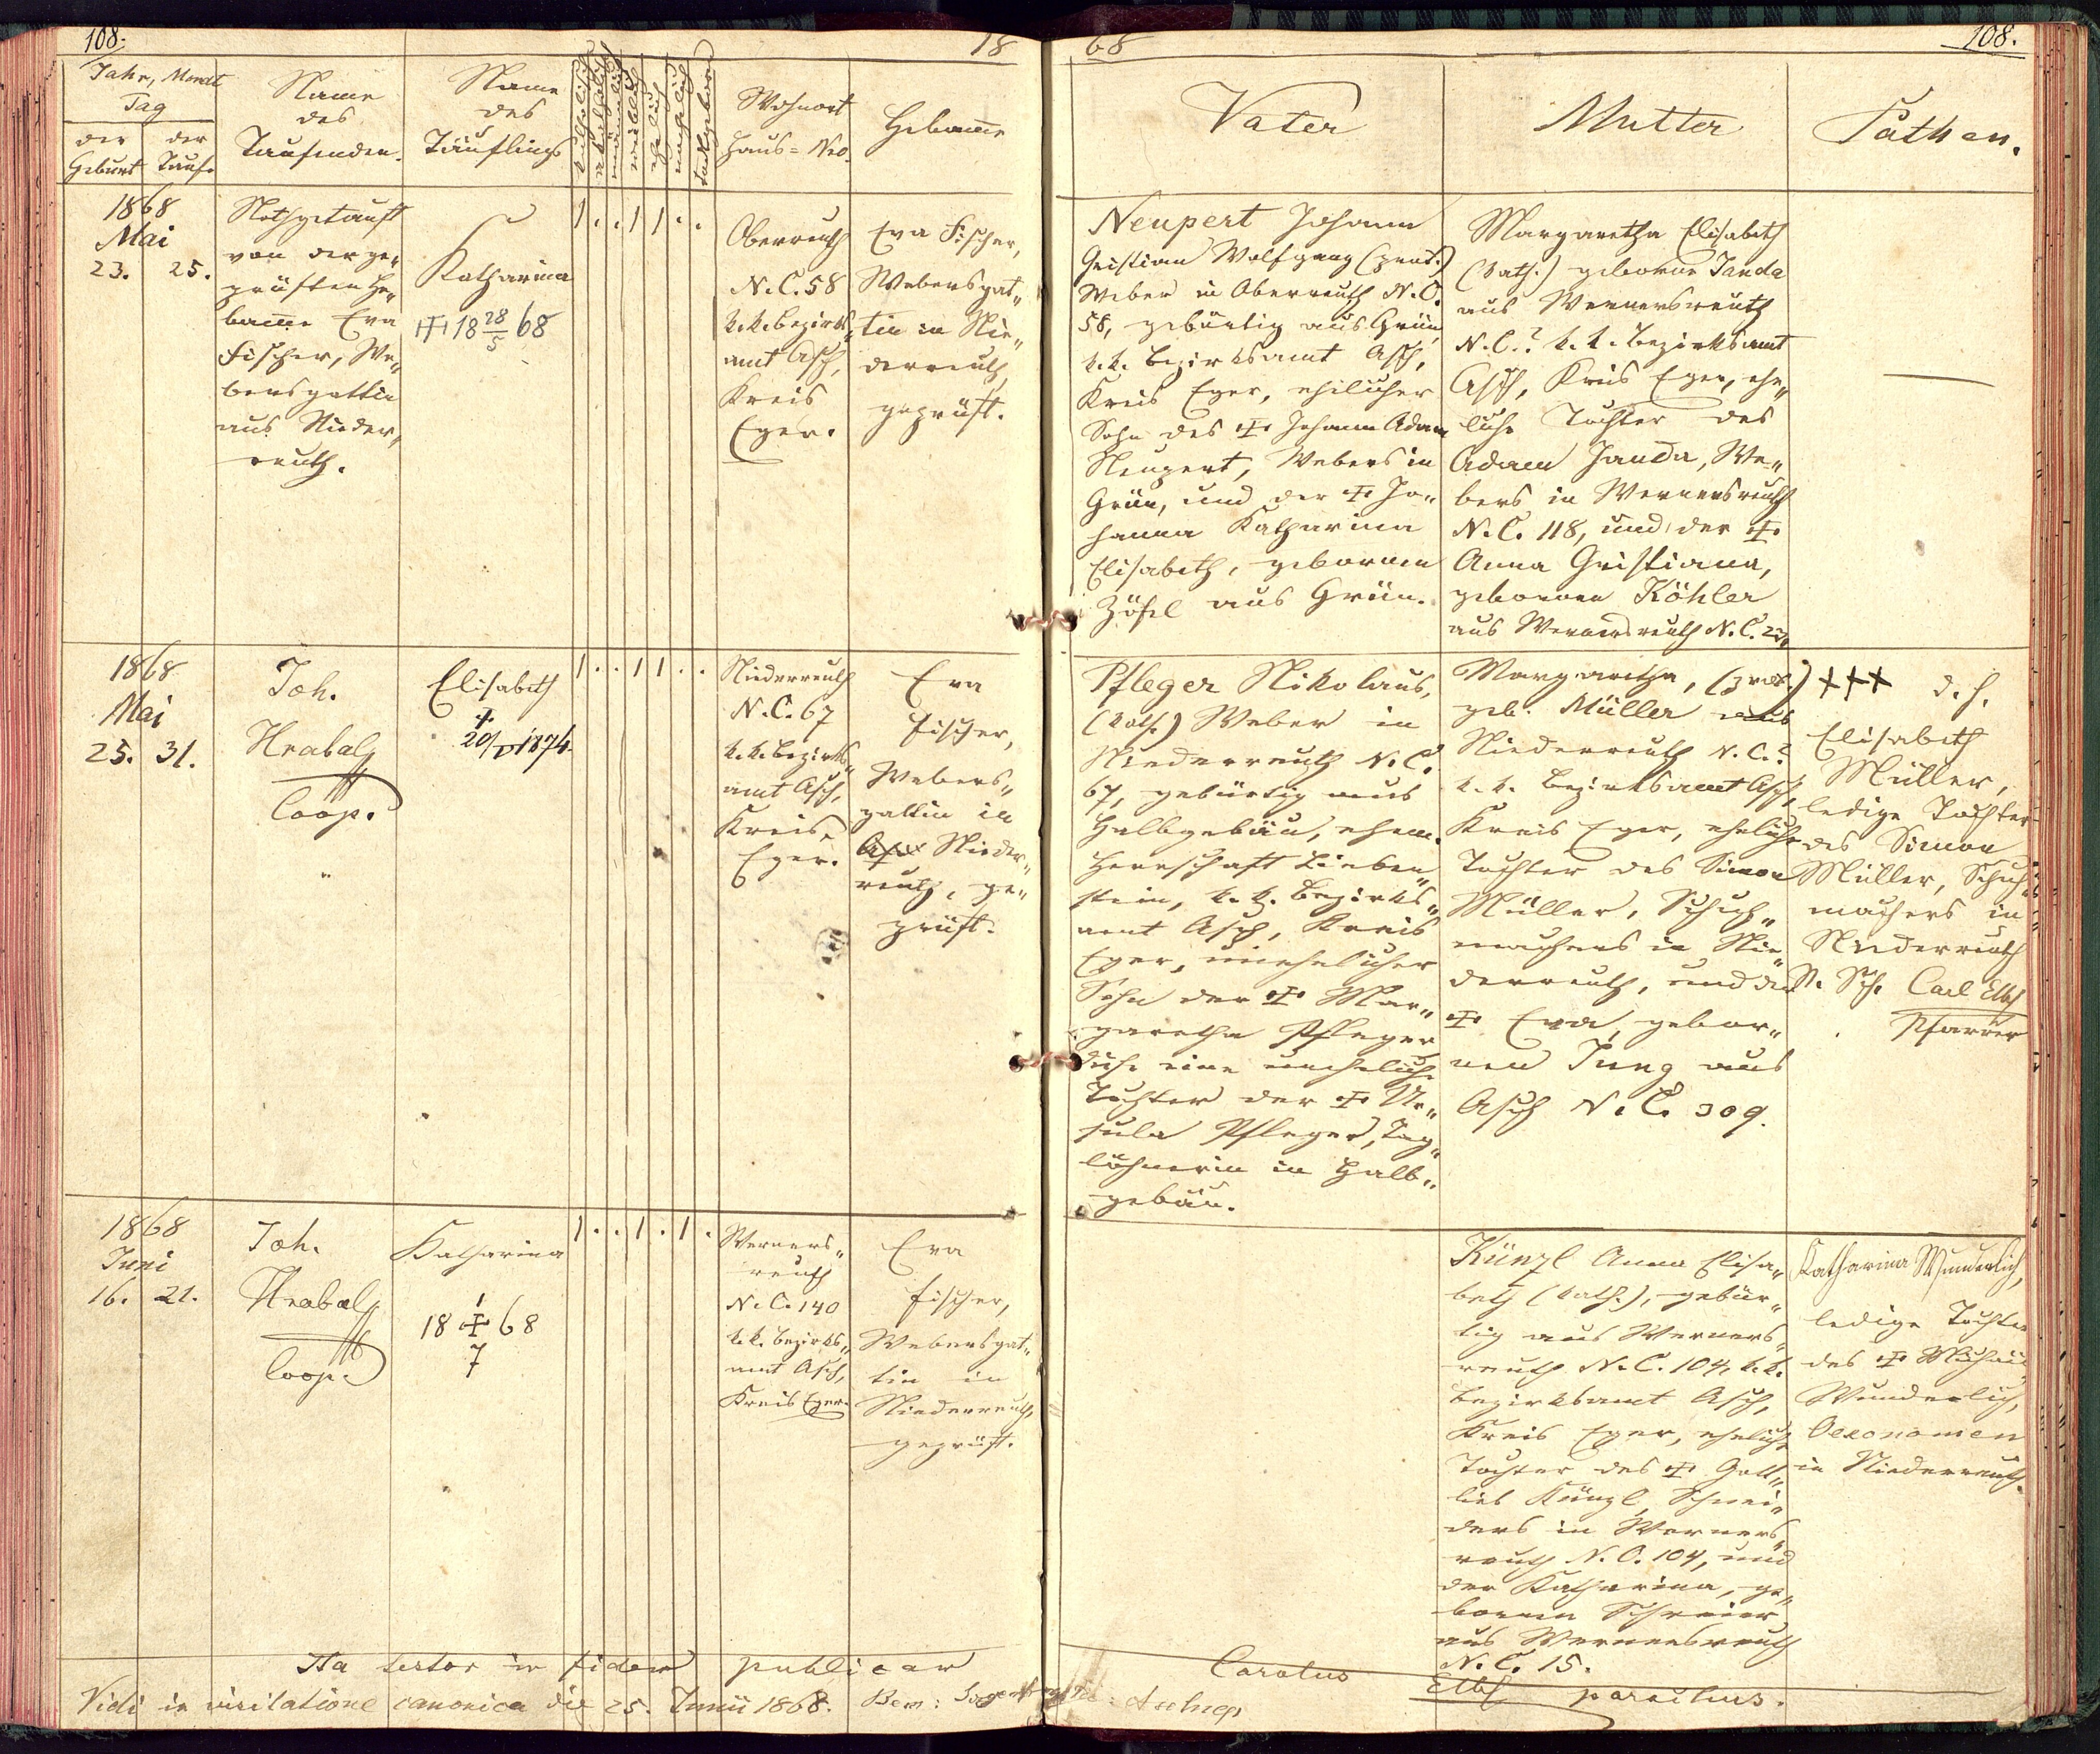 108.
18
68
108.
Jahr, Monat
Tag
der Geburt
der Taufe
Name
des
Taufenden.
Name
des
Täuflings
katholisch
akatholisch
männlich
weiblich
ehelich
unehelich
todtgeboren
Wohnort
Haus-Nro.
Hebamme
Vater
Mutter
Pathen.
1868
Mai
23. 25.
Nothgetauft
von der ge„
prüften He„
bamme Eva
Fischer, We„
bersgattin
aus Nieder„
reuth.
Katharina
18 28/5 68
1 . . 1 1 . .
Oberreuth
N.C. 58
k.k. Bezirks„
amt Asch,
Kreis
Eger.
Eva Fischer,
Webersgat„
tin in Nie„
derreuth,
geprüft.
Neupert Johann
Christian Wolfgang (prot.)
Weber in Oberreuth N.C.
58, gebürtig aus Grün,
k.k. Bezirksamt Asch,
Kreis Eger, ehelicher
Sohn des ☩ Johann Adam
Neupert, Webers in
Grün, und der ☩ Jo„
hanna Katharina
Elisabeth, gebornen
Zöfel aus Grün.
Margaretha Elisabeth
(kath.) geborne Janda
aus Wernersreuth
N.C.? k.k. Bezirksamt
Asch, Kreis Eger, ehe„
liche Tochter des
Adam Janda, We„
bers in Wernersreuth
N.C. 118, und der ☩
Anna Christiana,
gebornen Köhler
aus Wernersreuth N.C. 23.
1868
Mai
25. 31.
Joh.
Hrabak
Coop.
Elisabeth
☩
20/ 1874.
1 . . 1 1 . .
Niederreuth
N.C. 67
k.k. Bezirks„
amt Asch,
Kreis
Eger.
Eva
Fischer,
Webers„
gattin in
Nieder„
reuth, ge„
prüft.
Pfleger Nikolaus,
(kath.) Weber in
Niederreuth N.C.
67, gebürtig aus
Halbgebäu, ehem.
Herrschaft Lieben„
stein, k.k. Bezirks„
amt Asch, Kreis
Eger, unehelicher
Sohn der ☩ Mar„
garetha Pfleger,
diese eine uneheliche
Tochter der ☩ Ur„
sula Pfleger, Tag„
löhnerin in Halb„
gebäu.
Margaretha, (prot.)
geb. Müller aus
Niederreuth N.C.?
k.k. Bezirksamt Asch,
Kreis Eger, eheliche
Tochter des Simon
Müller, Schuh„
machers in Nie„
derreuth, und der
☩ Eva, gebor„
nen Jung aus
Asch N.C. 309.
+++ d. h.
Elisabeth
Müller,
ledige Tochter
des Simon
Müller, Schuh„
machers in
Niederreuth
N. Sch. Carl Elbl
Pfarrer
1868
Juni
16. 21.
Joh.
Hrabak
Coop.
Katharina
1
18 ☩ 68
7
1 . . 1 . 1 .
Werners„
reuth
N.C. 140
k.k. Bezirks„
amt Asch,
Kreis Eger.
Eva
Fischer,
Webersgat„
tin in
Niederreuth,
geprüft.
Künzl Anna Elisa„
beth (kath.), gebür„
tig aus Werners„
reuth N.C. 104, k.k.
Bezirksamt Asch,
Kreis Eger, eheliche
Tochter des ☩ Gott„
lieb Künzl, Schnei„
ders in Werners„
reuth N.C. 104, und
der Katharina, ge„
bornen Schreier
aus Wernersreuth
N.C. 15.
Katharina Wunderlich,
ledige Tochter
des ☩ Michael
Wunderlich,
Oekonomen
in Niederreuth.
Ita testor in fidem publicam
Carolus Elbl parochus.
Vidi in visitatione canonica die 25. Junii 1868.